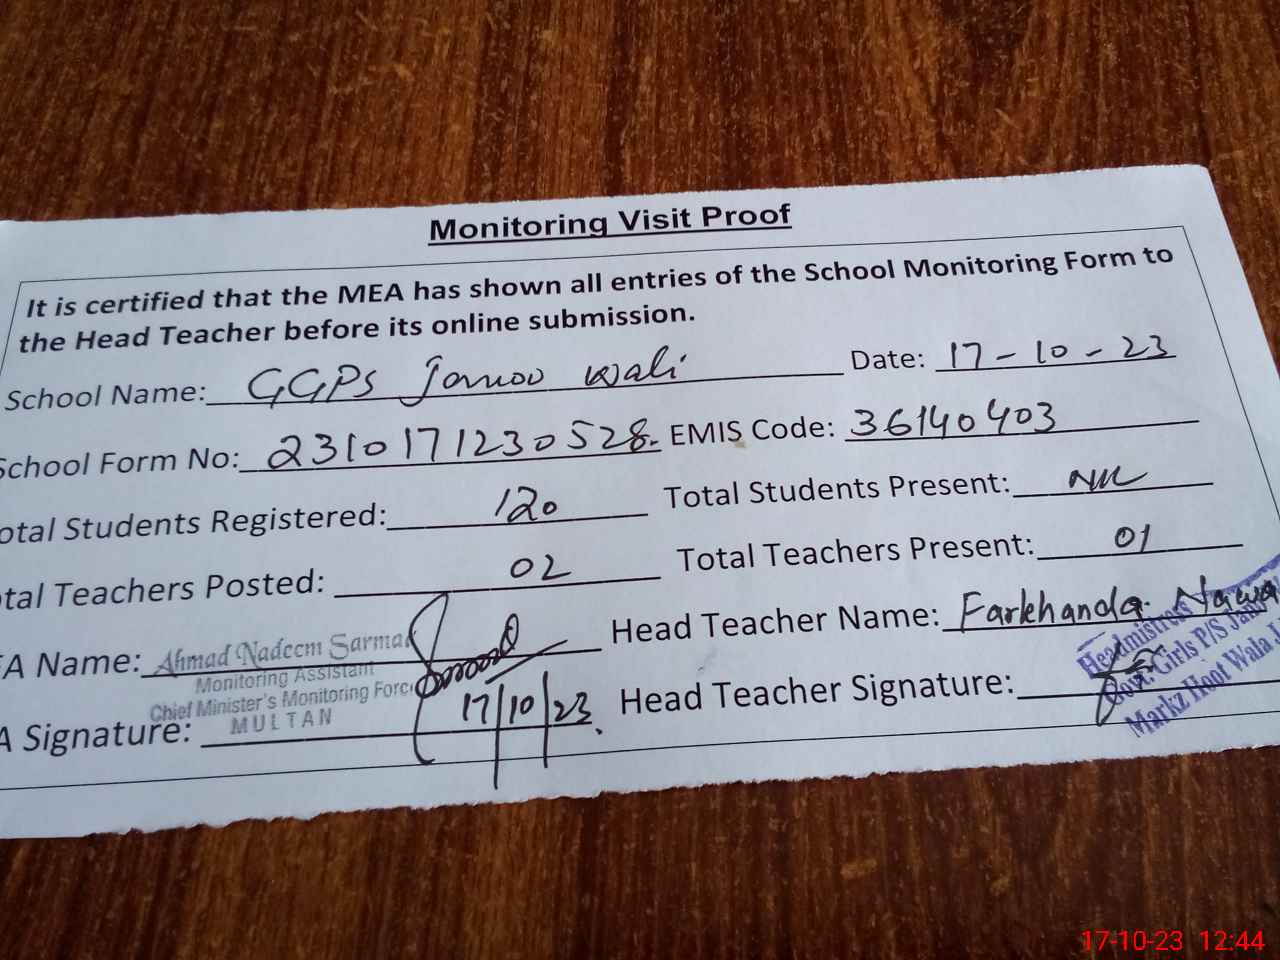 Monitoring Visit Proof
It is certified that the MEA has shown all entries of the School Monitoring Form to
the Head Teacher before its online submission.
School Name: GGPS Jamoo wali Date: 17-10-23
School Form No: 2310171230528 EMIS Code: 36140403
otal Students Registered: 120 Total Students Present: Nil
tal Teachers Posted: 02 Total Teachers Present: 01
EA Name: Ahmad Nadeem Sarmad Head Teacher Name: Farkhanda Nawa
Monitoring Assistant
Chief Minister's Monitoring Force
MULTAN
A Signature: 17/10/23 Head Teacher Signature:
Headmistress
Govt. Girls P/S
Markz Hoot Wala
17-10-23 12:44